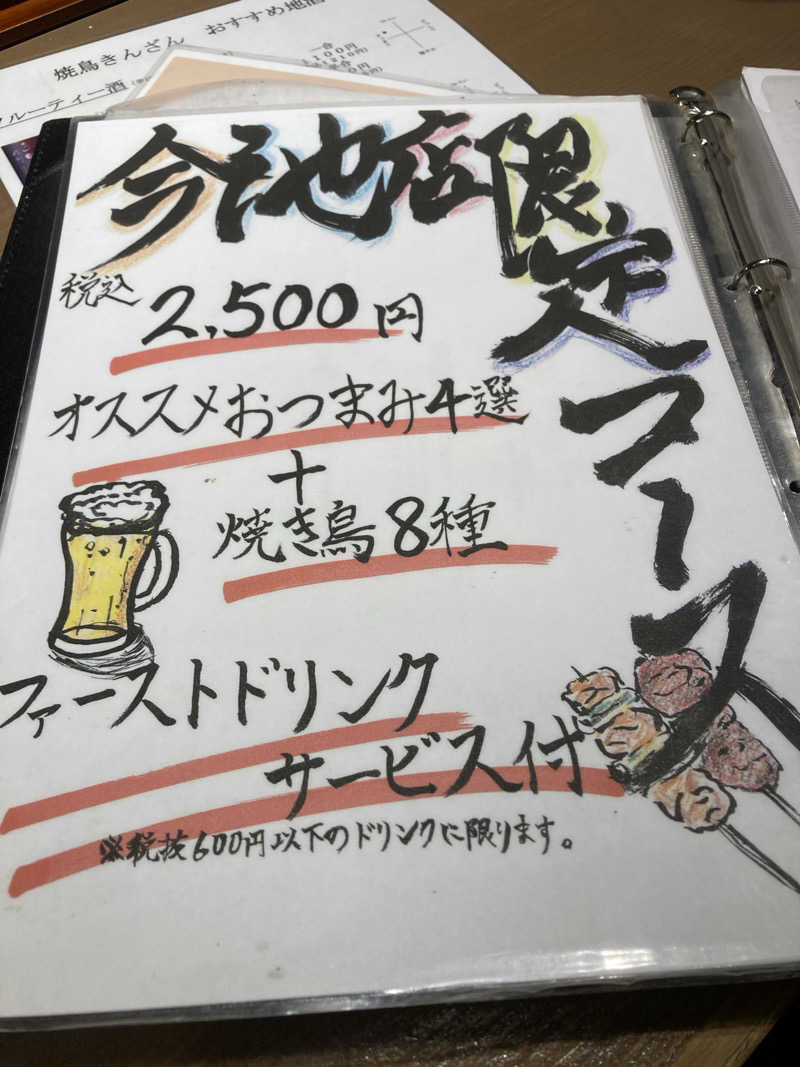 焼鳥きんざん おすすめ地酒
ルーティー酒
一合
今池店限定コース
税込
2,500円
オススメおつまみ4選
+
焼き鳥8種
ファーストドリンク
サービス付
※税抜600円以下のドリンクに限ります。